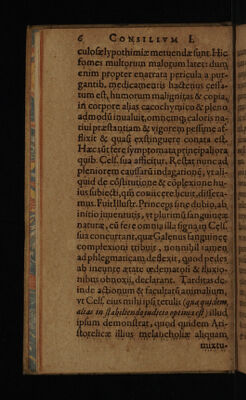 6 CONSILIVM I.
culosę lypothimiæ metuendæ sunt. Hic
fomes multorum malorum latet: dum
enim propter enarrata pericula a pur-
gantib. medicamentis hactenus cessa-
tum est, humorum malignitas & copia,
in corpore alias cacochymico & pleno
admodũ inualuit, omnemq; caloris na-
tiui præstantiam & vigorem pessime af-
flixit & quasi extinguere conata est.
Hæc sũt fere symptomata principaliora
quib. Cels. sua afficitur. Restat nunc ad
pleniorem causarũ indagationē, vt ali-
quid de cõstitutione & cõplexione hu-
ius subiecti, qñ conijcere licet, dissera-
mus. Fuit Illustr. Princeps sine dubio, ab
initio iuuentutis, vt plurimũ sanguineæ
naturæ, cũ fere omnia illa signa in Cels.
sua concurrant, quæ Galenus sanguineę
complexioni tribuit, nonnihil tamen
ad phlegmaticam deflexit, quod pedes
ab ineunte ætate œdematosi & fluxio-
nibus obnoxij, declarant. Tarditas de-
inde actionum & facultatũ animalium,
vt Cels. eius mihi ipsi retulit (quæ quidem,
alias in stabiliendo iudicio optima est) illud
ipsum demonstrat, quod quidem Ari-
stotelicæ illius melancholiæ aliquam
mixtu-